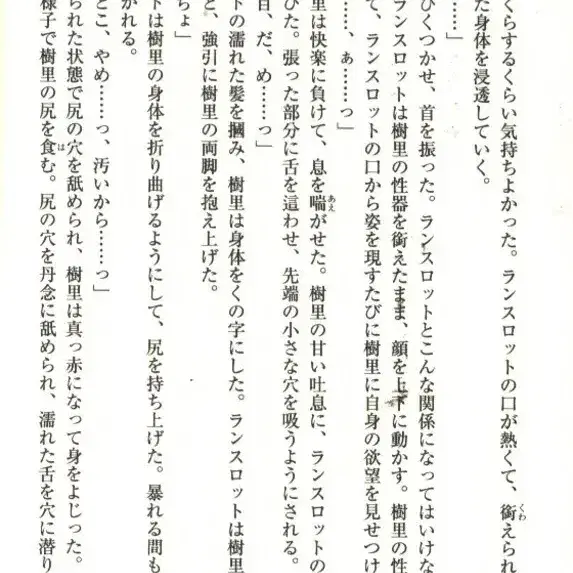 くらするくらい気持ちよかった。ランスロットの口が熱くて、銜えられ
た身体を浸透していく。
……」
ひくつかせ、首を振った。ランスロットとこんな関係になってはいけな
ランスロットは樹里の性器を銜えたまま、顔を上下に動かす。樹里の性
て、ランスロットの口から姿を現すたびに樹里に自身の欲望を見せつけ
…、ぁ……っ」
里は快楽に負けて、息を喘がせた。樹里の甘い吐息に、ランスロットの
びた。張った部分に舌を這わせ、先端の小さな穴を吸うようにされる。
目、だ、め……っ」
トの濡れた髪を摑み、樹里は身体をくの字にした。ランスロットは樹里
と、強引に樹里の両脚を抱え上げた。
ちょ」
トは樹里の身体を折り曲げるようにして、尻を持ち上げた。暴れる間も
かれる。
とこ、やめ……っ、汚いから……っ」
られた状態で尻の穴を舐められ、樹里は真っ赤になって身をよじった。
様子で樹里の尻を食む。尻の穴を丹念に舐められ、濡れた舌を穴に潜り